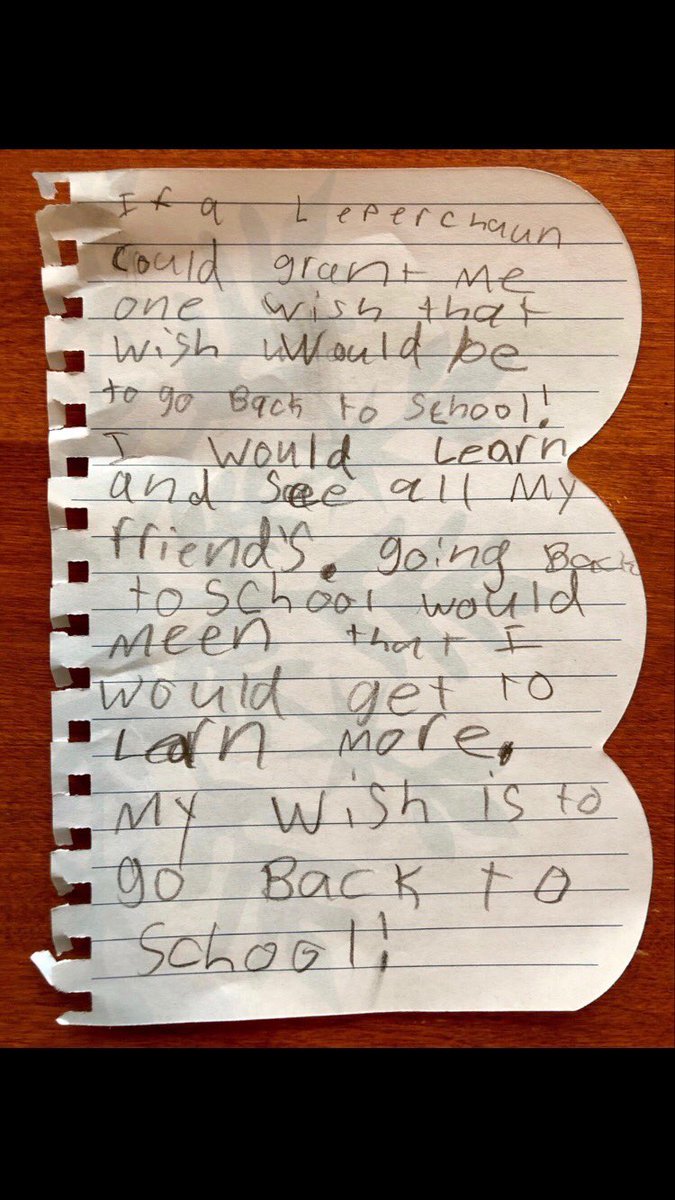 If a Leperchaun
Could grant me
one wish that
wish would be
to go Back to School!
I would Learn
and See all My
friend's. going Back
to School would
Meen that I
would get to
Learn More.
My Wish is to
go Back to
School!